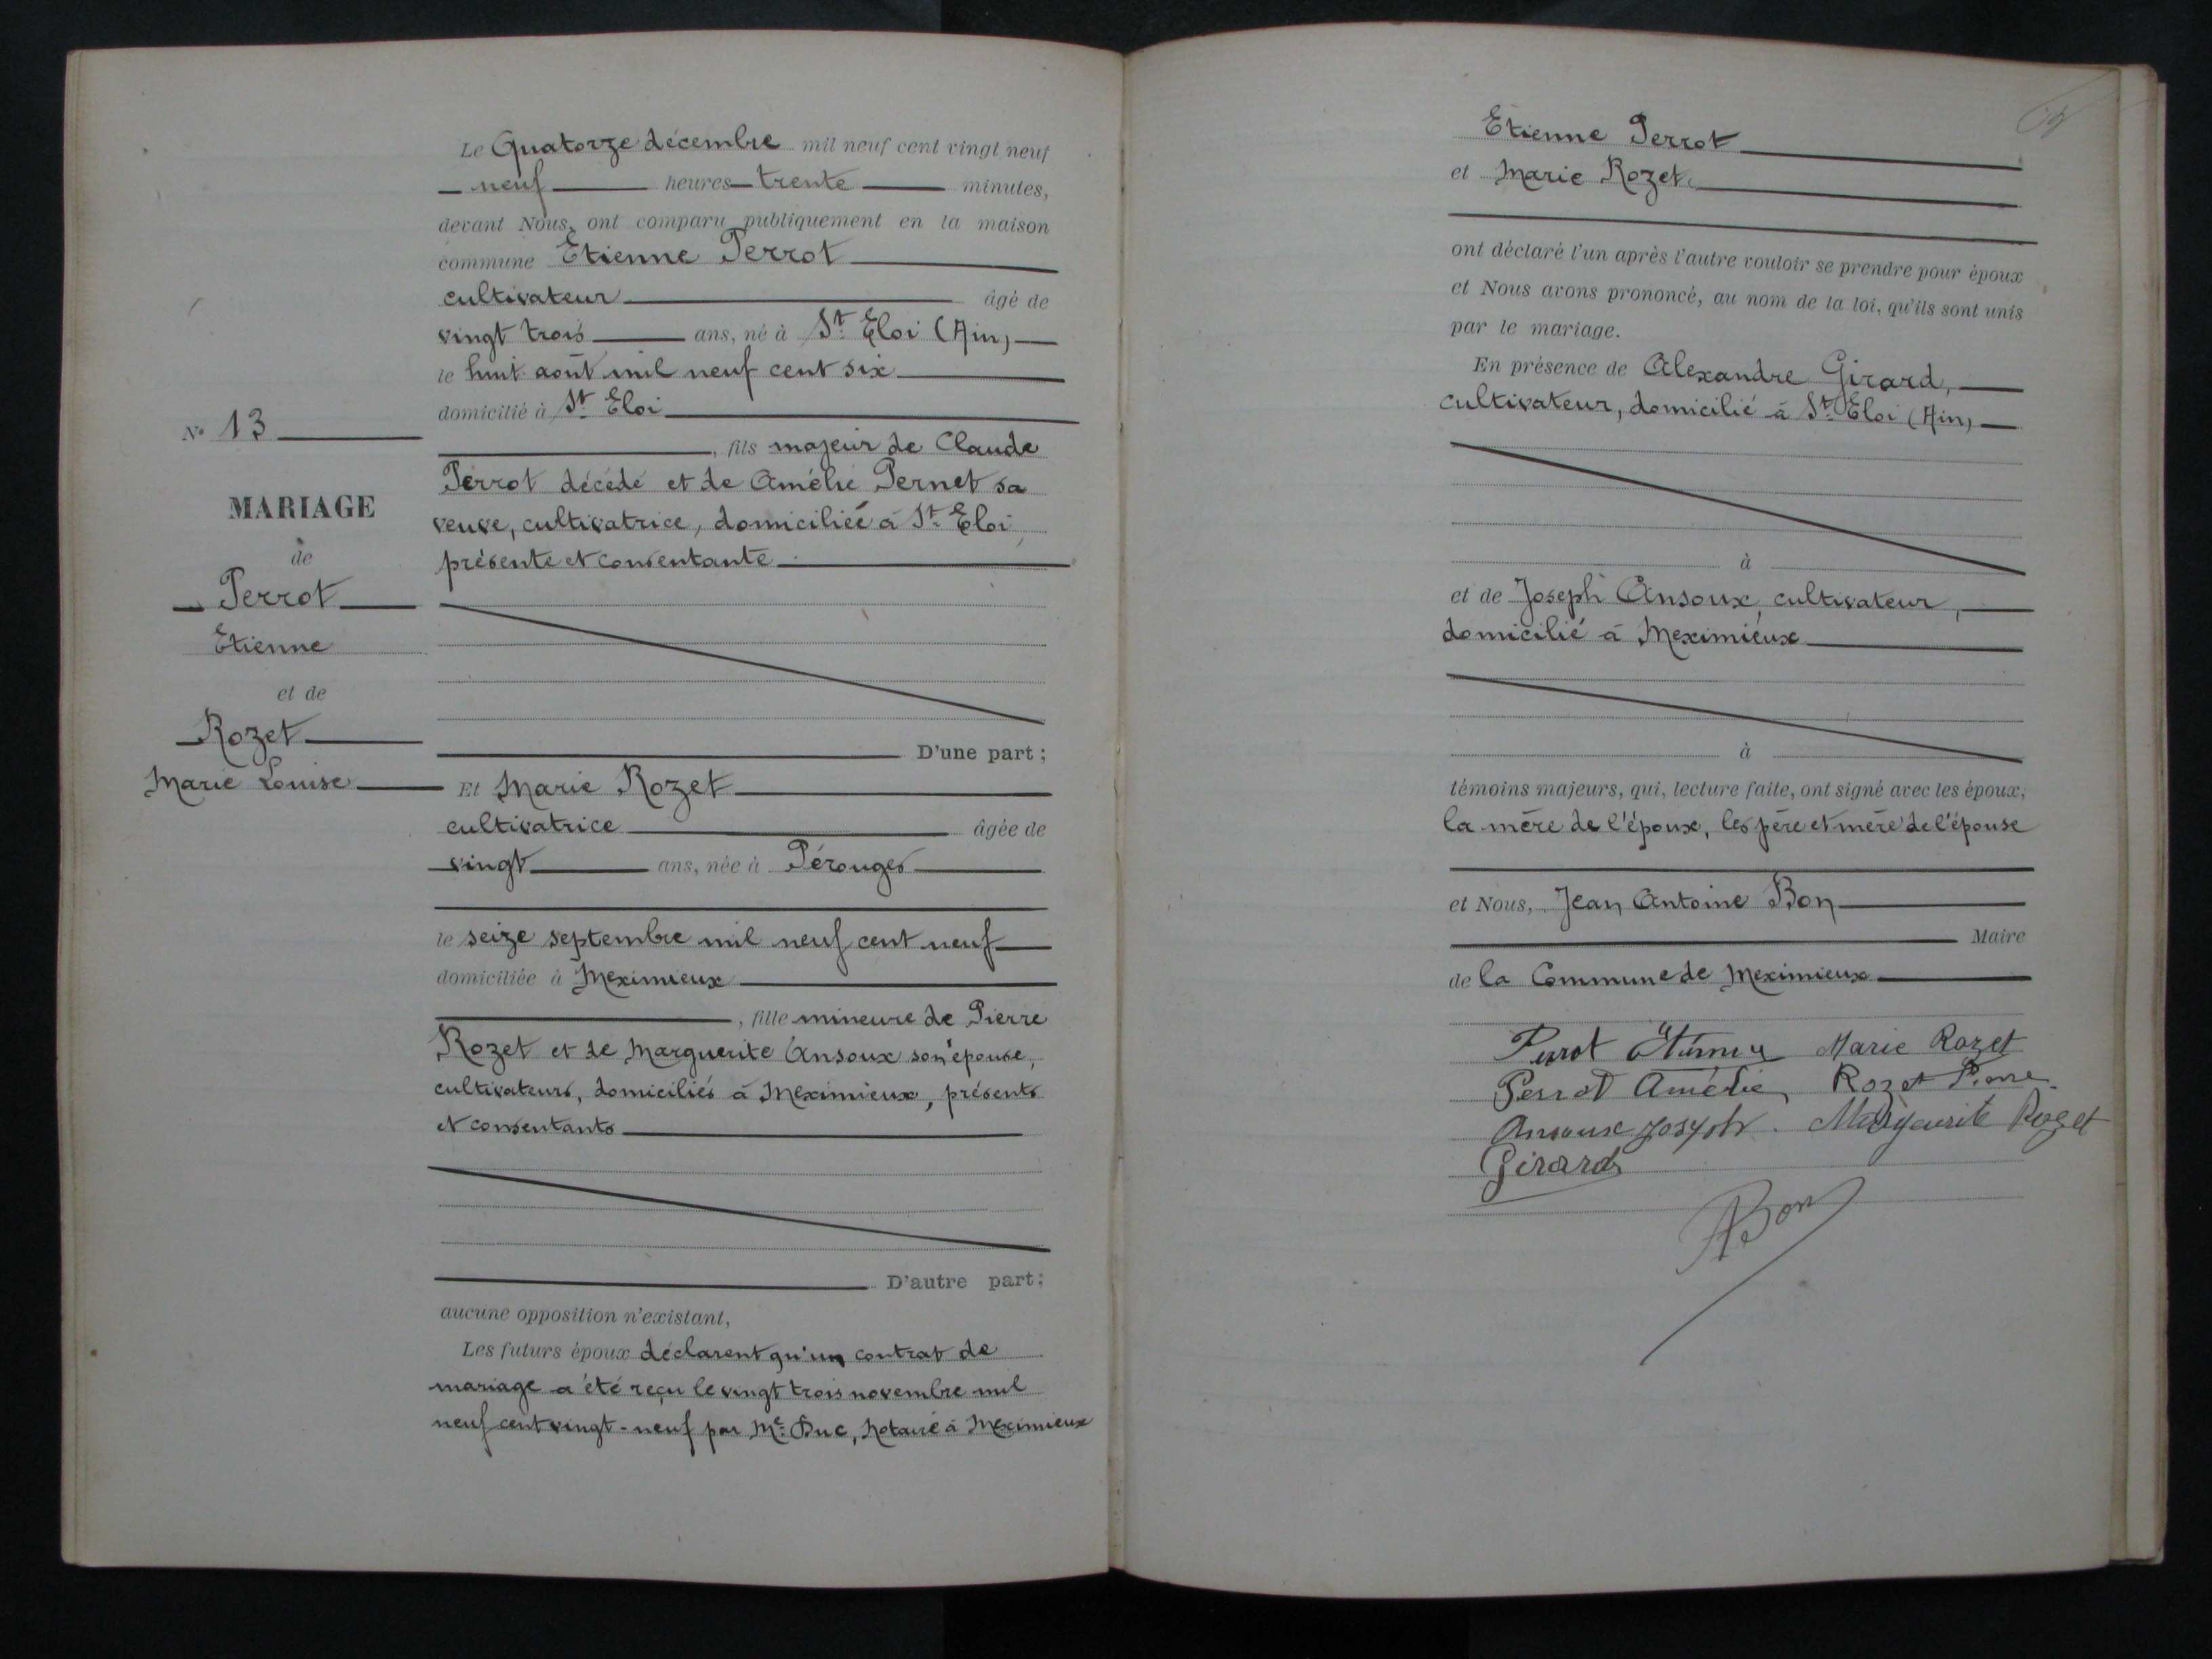 N° 13
MARIAGE
de
Perrot
Etienne
et de
Rozet
Marie Louise
Le Quatorze décembre mil neuf cent vingt neuf
neuf heures trente minutes,
devant Nous, ont comparu publiquement en la maison
commune Etienne Perrot
cultivateur âgé de
vingt trois ans, né à St Eloi (Ain)
le huit août mil neuf cent six
domicilié à St Eloi
, fils majeur de Claude
Perrot décédé et de Amélie Pernet sa
veuve, cultivatrice, domiciliée à St Eloi,
présente et consentante
D'une part ;
Et Marie Rozet
cultivatrice âgée de
vingt ans, née à Pérouges
le seize septembre mil neuf cent neuf
domiciliée à Meximieux
, fille mineure de Pierre
Rozet et de Marguerite Ansoux son épouse,
cultivateurs, domiciliés à Meximieux, présents
et consentants
D'autre part ;
aucune opposition n'existant,
Les futurs époux déclarent qu'un contrat de
mariage a été reçu le vingt trois novembre mil
neuf cent vingt-neuf par Me Duc, Notaire à Meximieux
Etienne Perrot
et Marie Rozet
ont déclaré l'un après l'autre vouloir se prendre pour époux
et Nous avons prononcé, au nom de la loi, qu'ils sont unis
par le mariage.
En présence de Alexandre Girard,
cultivateur, domicilié à St Eloi (Ain)
à
et de Joseph Ansoux, cultivateur,
domicilié à Meximieux
à
témoins majeurs, qui, lecture faite, ont signé avec les époux,
la mère de l'époux, les père et mère de l'épouse
et Nous, Jean Antoine Bon
Maire
de la Commune de Meximieux
Perrot Etienne Marie Rozet
Perrot Amélie Rozet Pierre
Ansoux Joseph. Marguerite Rozet
Girard
ABon